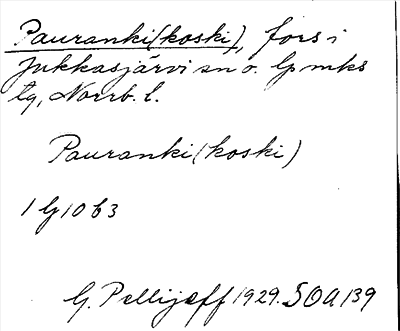 Pauranki(koski), fors i
Jukkasjärvi sn o. lpmks
tg, Norrb. l.
Pauranki(koski)
1 lg 10 b 3
G. Pellijeff 1929. SOA 139